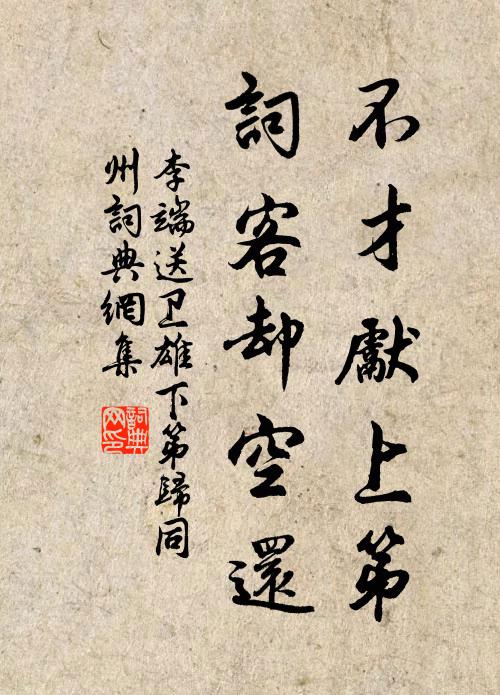 不才獻上第
詞客却空還
李端送卫雄下第歸同
州詞典網集
詞典
网印